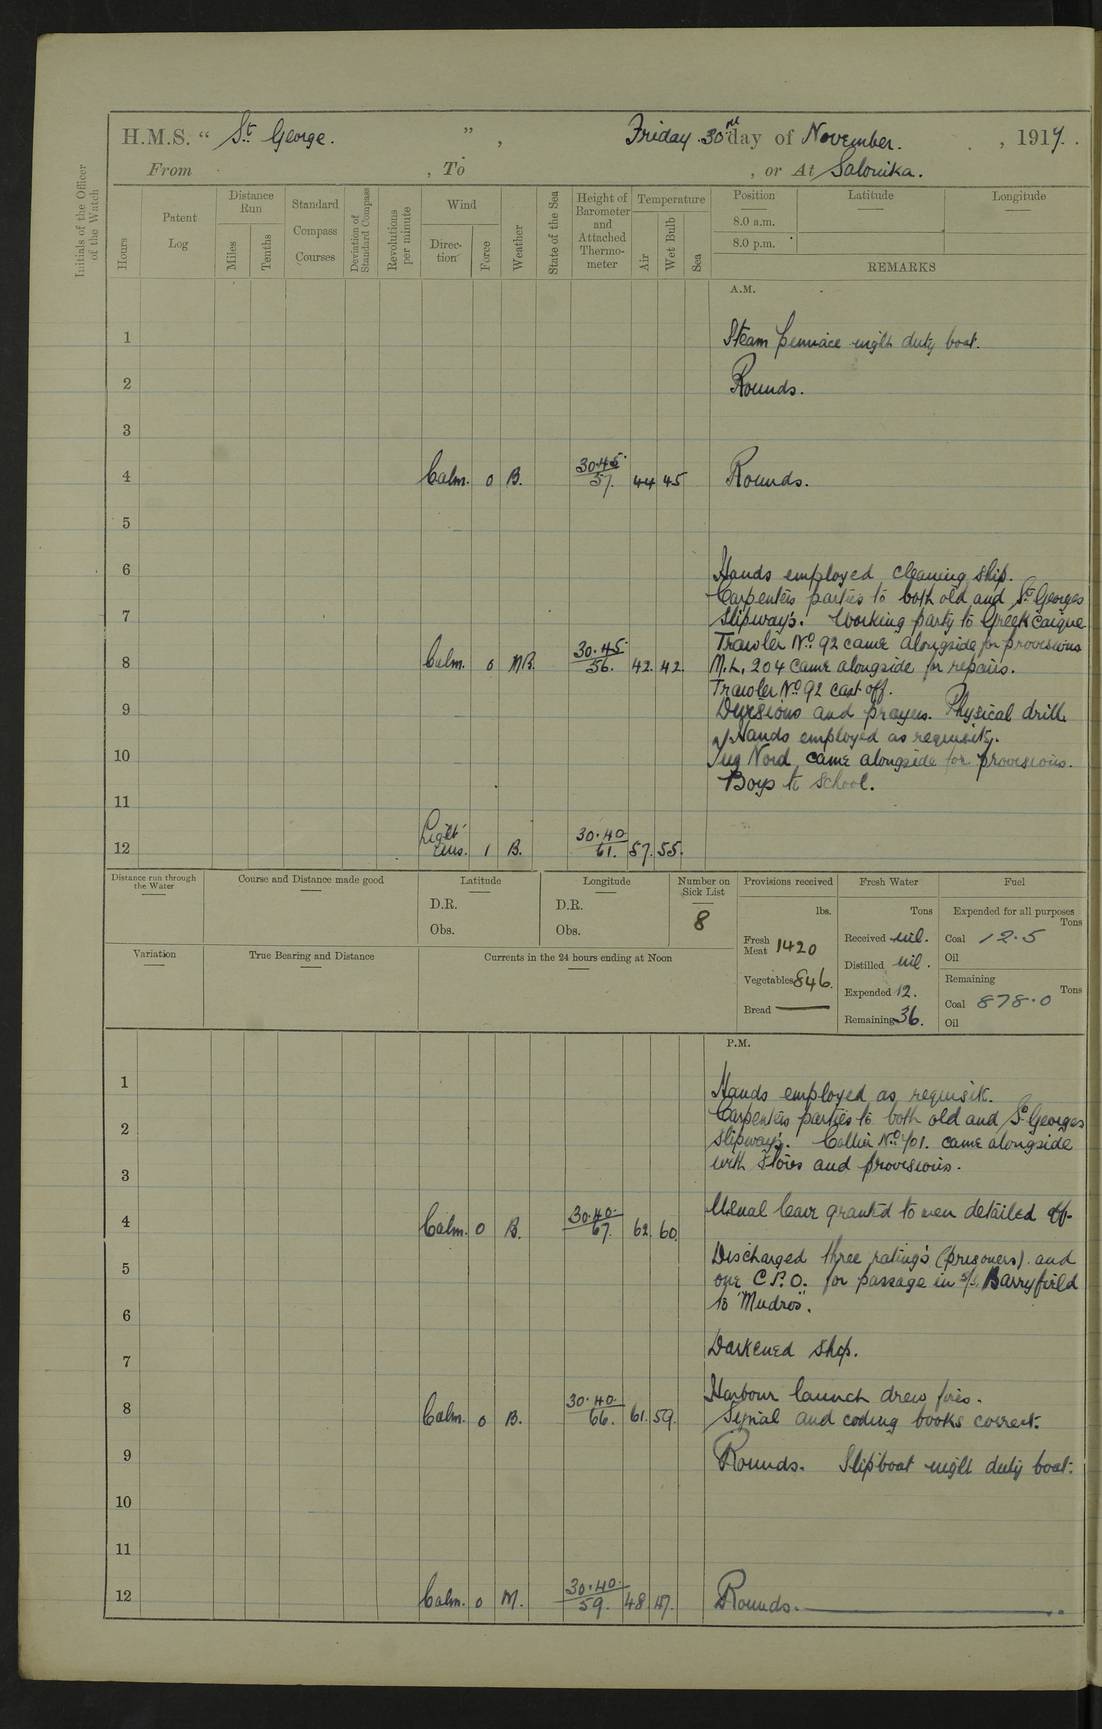 H.M.S. “ St George. ” , Friday 30th day of November. , 1917.
From , To , or At Salonika.
Initials of the Officer of the Watch
Hours
Patent Log
Distance Run
Miles
Tenths
Standard Compass Courses
Deviation of Standard Compass
Revolutions per minute
Wind
Direction
Force
Weather
State of the Sea
Height of Barometer and Attached Thermometer
Temperature
Air
Wet Bulb
Sea
Position
Latitude
Longitude
8.0 a.m.
8.0 p.m.
REMARKS
A.M.
1 Steam pinnace night duty boat.
2 Rounds.
3
4 Calm. 0 B. 30.45 57. 44 45 Rounds.
5
6 Hands employed cleaning ship.
Carpenters parties to both old and St Georges
7 Slipway's. Working party to Greek caique
Trawler No 92 came alongside for provisions
8 Calm. 0 MB. 30.45 56. 42. 42. M.L. 204 came alongside for repairs.
Trawler No 92 cast off.
9 Divisions and prayers. Physical drill.
Hands employed as requisite.
10 Tug Nord came alongside for provisions.
Boys to School.
11
12 Light airs. 1 B. 30.40 61. 57. 55.
Distance run through the Water
Course and Distance made good
Latitude
D.R.
Obs.
Longitude
D.R.
Obs.
Number on Sick List
8
Provisions received
lbs.
Fresh Meat 1420
Vegetables 846.
Bread —
Fresh Water
Tons
Received nil.
Distilled nil.
Expended 12.
Remaining 36.
Fuel
Expended for all purposes
Tons
Coal 12.5
Oil
Remaining
Tons
Coal 878.0
Oil
Variation
True Bearing and Distance
Currents in the 24 hours ending at Noon
P.M.
1 Hands employed as requisite.
Carpenters parties to both old and St Georges
2 slipway's. Collier No 401. came alongside
3 with Stores and provisions.
4 Calm. 0 B. 30.40. 67. 62. 60. Usual leave granted to men detailed off.
Discharged three rating's (prisoners) and
5 one C.P.O. for passage in s/s. Barryfield
6 to "Mudros".
7 Darkened Ship.
Harbour launch drew fires.
8 Calm. 0 B. 30.40. 66. 61. 59. Signal and coding books correct.
9 Rounds. Slipboat night duty boat.
10
11
12 Calm. 0 M. 30.40. 59. 48. 47. Rounds.